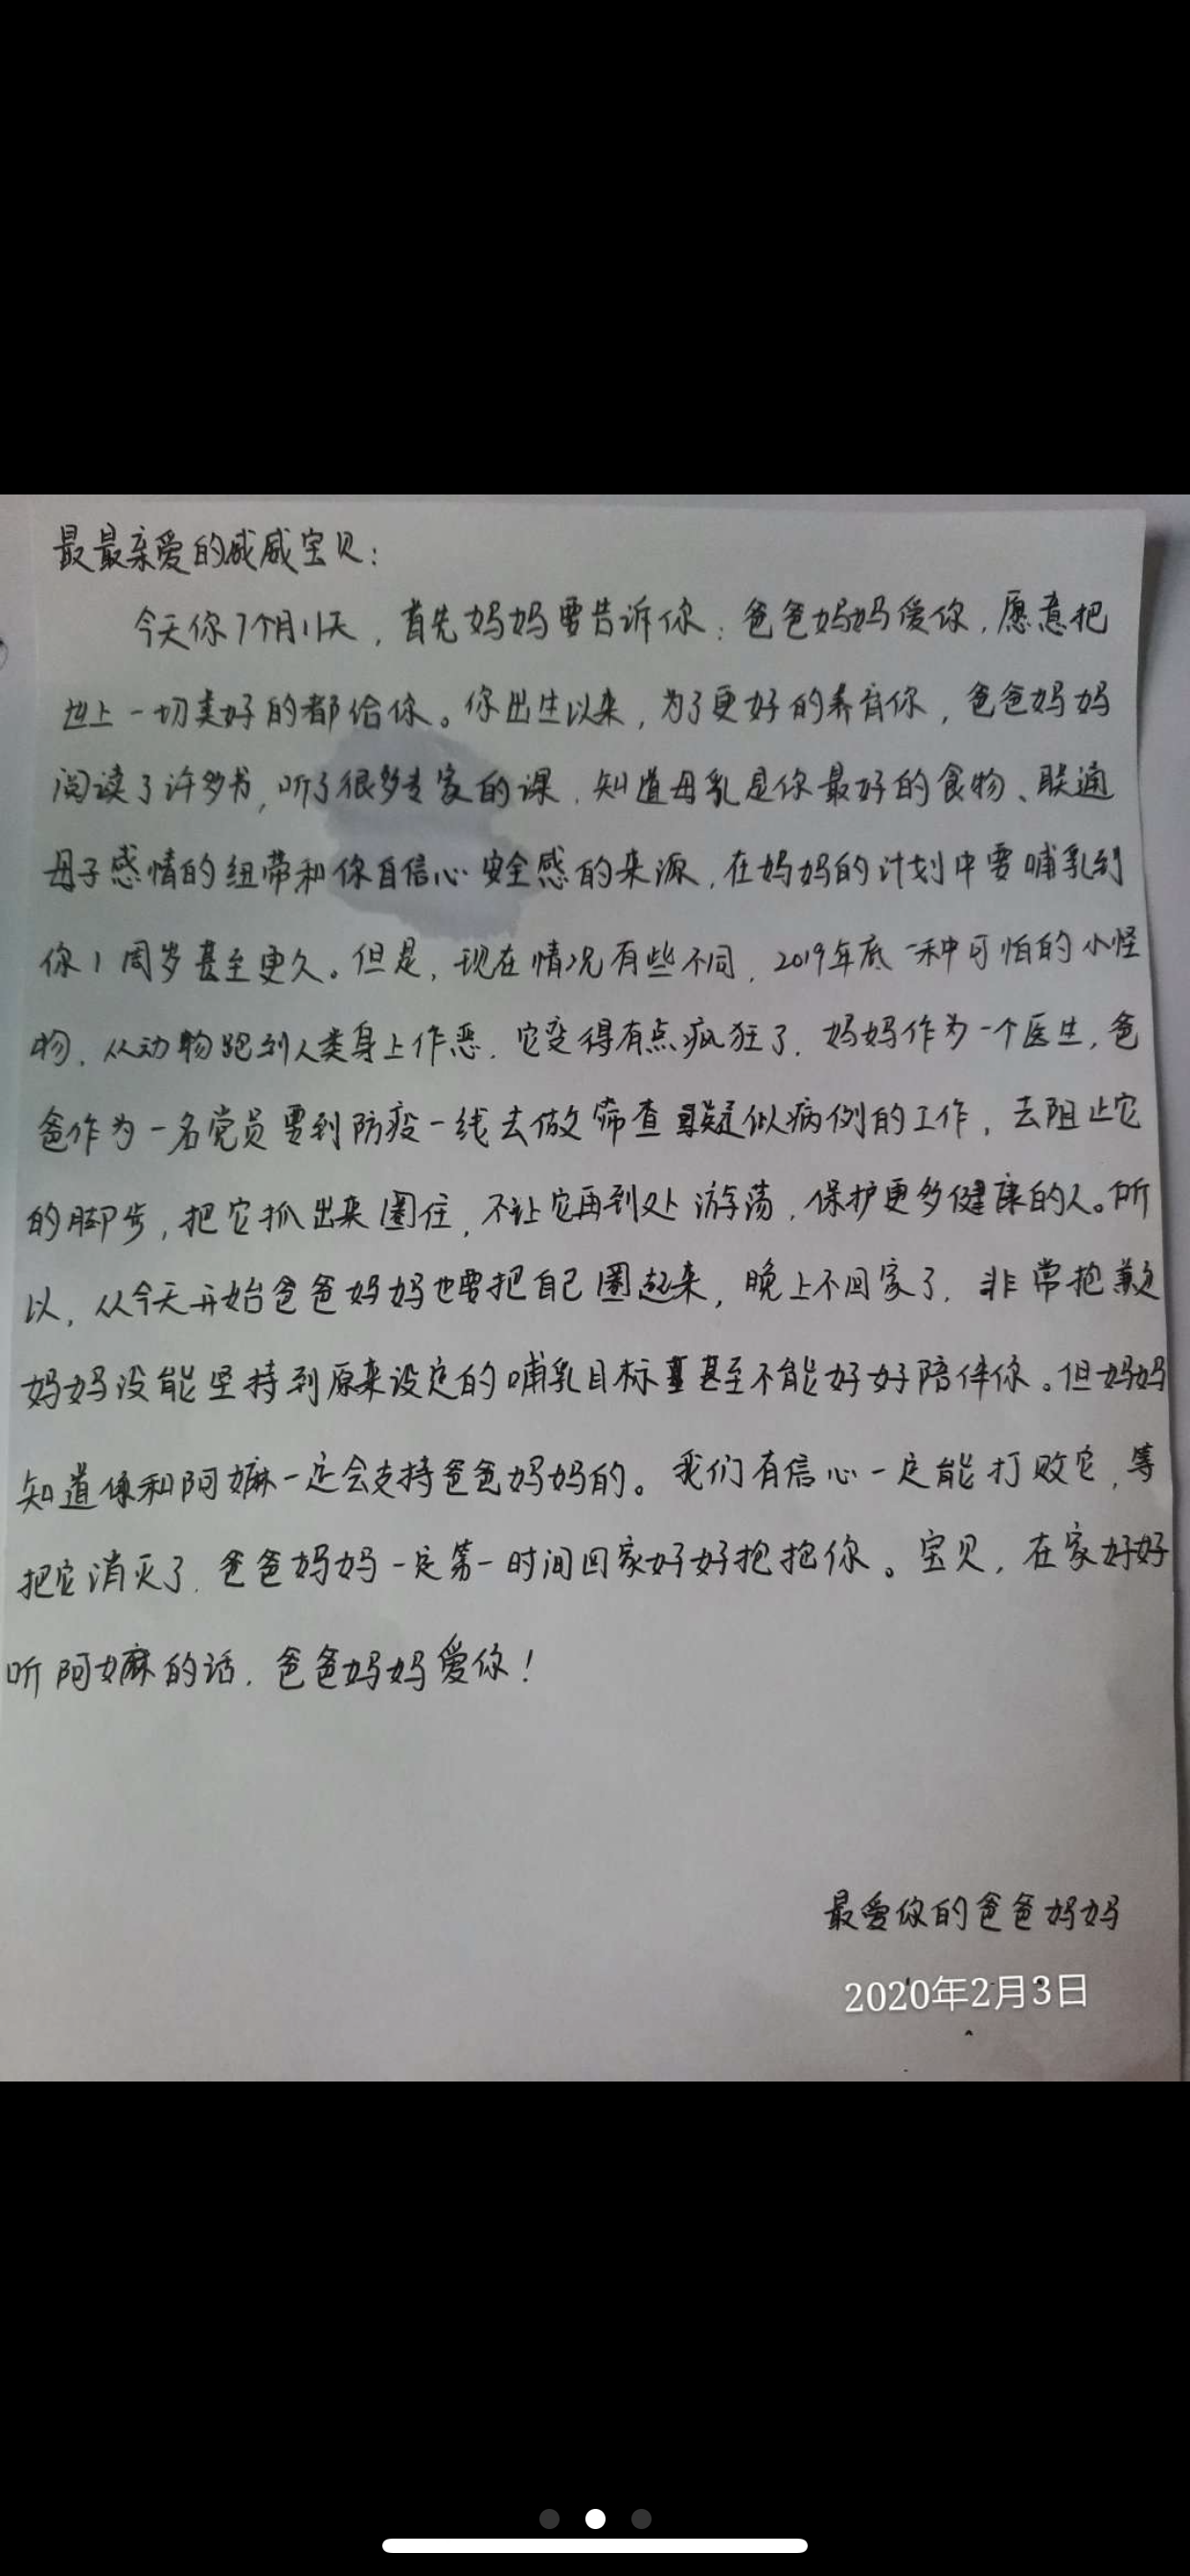 最最亲爱的威威宝贝：
今天你7个月11天，首先妈妈要告诉你：爸爸妈妈爱你，愿意把
世上一切美好的都给你。你出生以来，为了更好的养育你，爸爸妈妈
阅读了许多书，听了很多专家的课，知道母乳是你最好的食物、联通
母子感情的纽带和你自信心安全感的来源，在妈妈的计划中要哺乳到
你1周岁甚至更久。但是，现在情况有些不同，2019年底一种可怕的小怪
物，从动物跑到人类身上作恶，它变得有点疯狂了，妈妈作为一个医生，爸
爸作为一名党员要到防疫一线去做筛查疑似病例的工作，去阻止它
的脚步，把它抓出来圈住，不让它再到处游荡，保护更多健康的人。所
以，从今天开始爸爸妈妈也要把自己圈起来，晚上不回家了，非常抱歉
妈妈没能坚持到原来设定的哺乳目标甚至不能好好陪伴你。但妈妈
知道你和阿嫲一定会支持爸爸妈妈的。我们有信心一定能打败它，等
把它消灭了，爸爸妈妈一定第一时间回家好好抱抱你。宝贝，在家好好
听阿嫲的话，爸爸妈妈爱你！
最爱你的爸爸妈妈
2020年2月3日